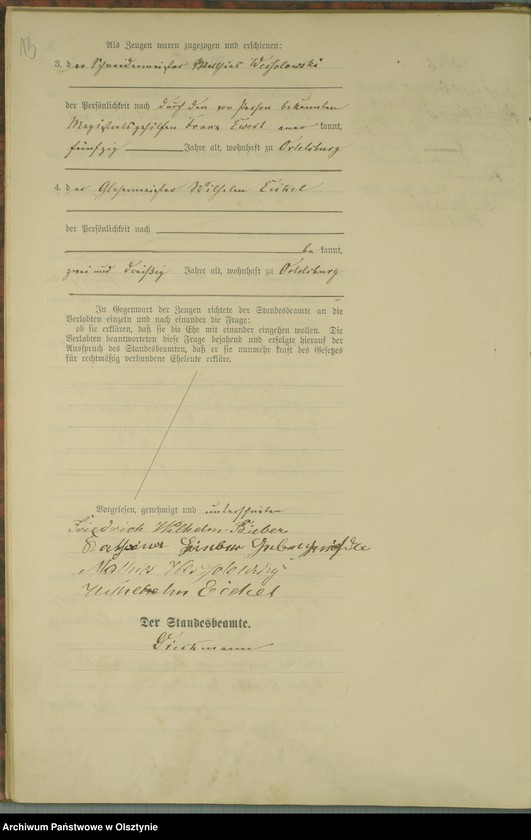 Als Zeugen waren zugezogen und erschienen:
3. der Schneidermeister Mathias Wessolowski
der Persönlichkeit nach durch den von Person bekannten
Magistratsgehilfen Franz Ewert aner kannt,
fünfzig Jahre alt, wohnhaft zu Ortelsburg
4. der Glasermeister Wilhelm Eickel
der Persönlichkeit nach
be kannt,
zwei und dreißig Jahre alt, wohnhaft zu Ortelsburg
In Gegenwart der Zeugen richtete der Standesbeamte an die
Verlobten einzeln und nach einander die Frage:
ob sie erklären, daß sie die Ehe mit einander eingehen wollen. Die
Verlobten beantworteten diese Frage bejahend und erfolgte hierauf der
Ausspruch des Standesbeamten, daß er sie nunmehr kraft des Gesetzes
für rechtmäßig verbundene Eheleute erkläre.
Vorgelesen, genehmigt und unterschrieben
Friedrich Wilhelm Bieber
Bieber
Wilhelm Eickel
Der Standesbeamte.
Archiwum Państwowe w Olsztynie